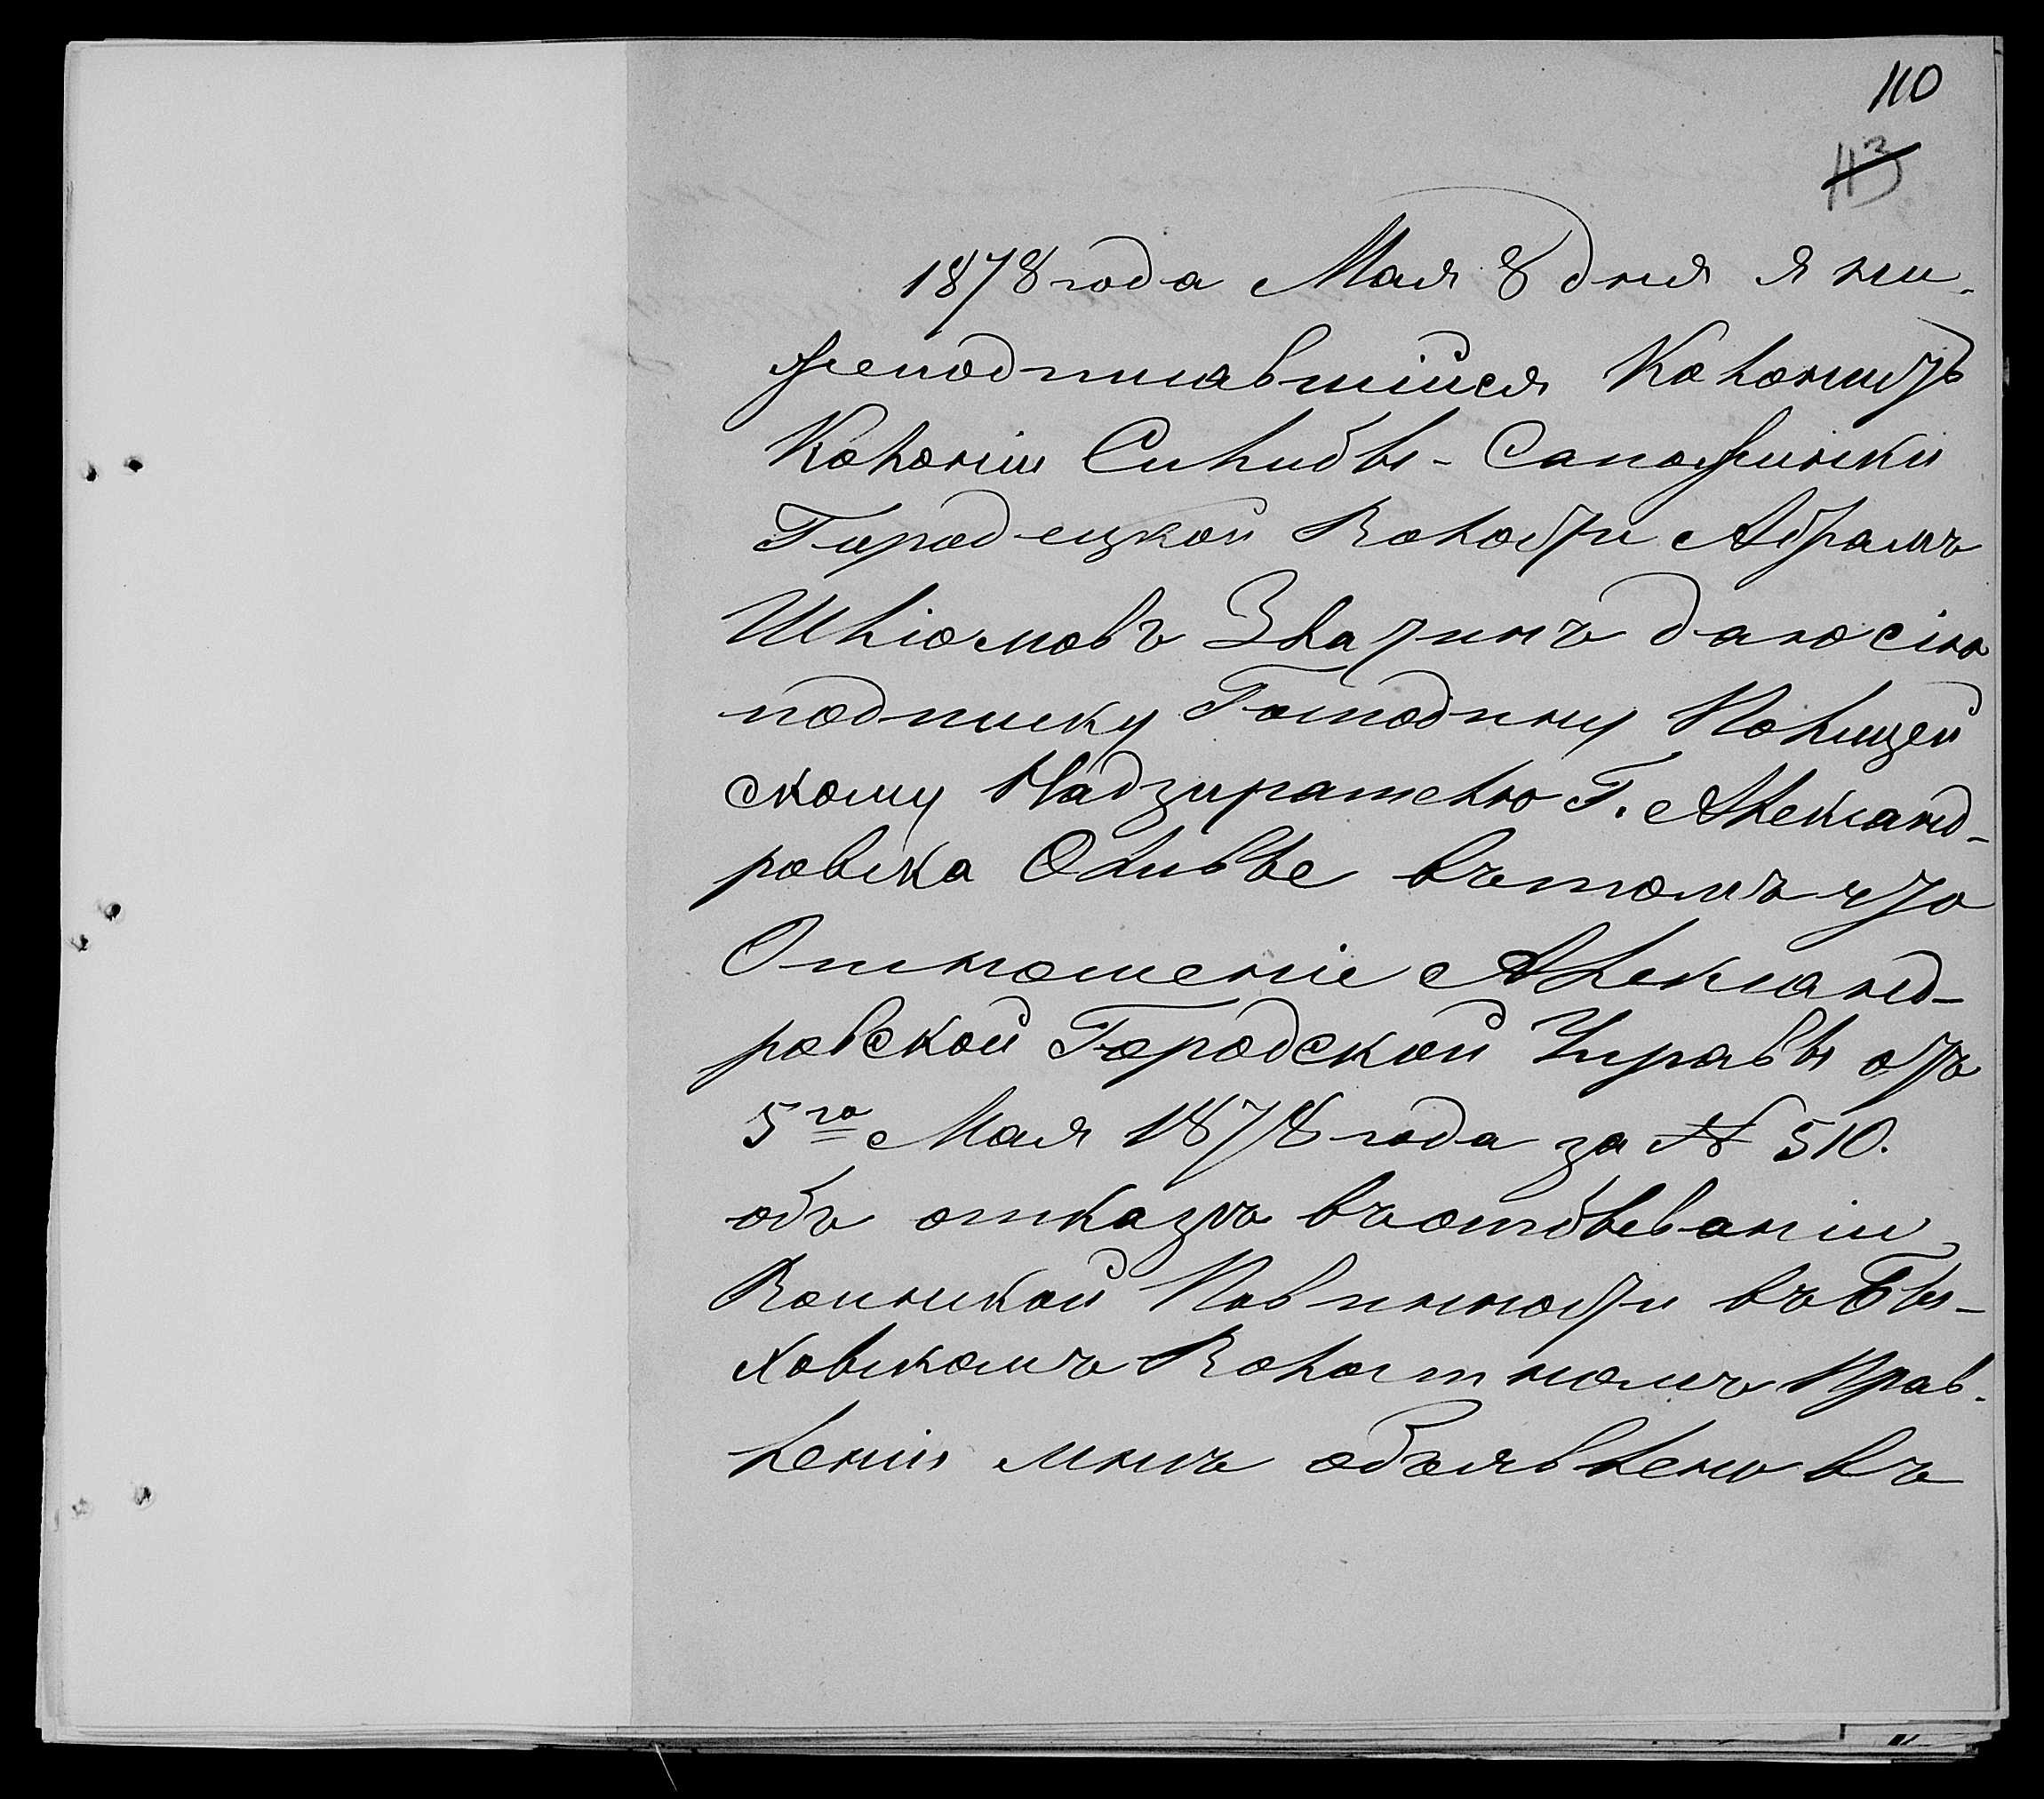 110
113
1878 года Мая 8 дня я ни-
жеподписавшійся Колонистъ
Колоніи Силибы-Сапожинки
Городецкой Волости Абрамъ
Шліомовъ Зларинъ даю сію
подписку Господину Полицей
скому Надзирателю Г. Александ-
ровска Оливье въ томъ что
Отношеніе Александ-
ровской Городской Управы отъ
5го Мая 1878 года за № 510.
объ отказѣ въ отбываніи
Воинской Повинности въ Бы-
ховскомъ Волостномъ Прав-
леніи мнѣ объявлено въ